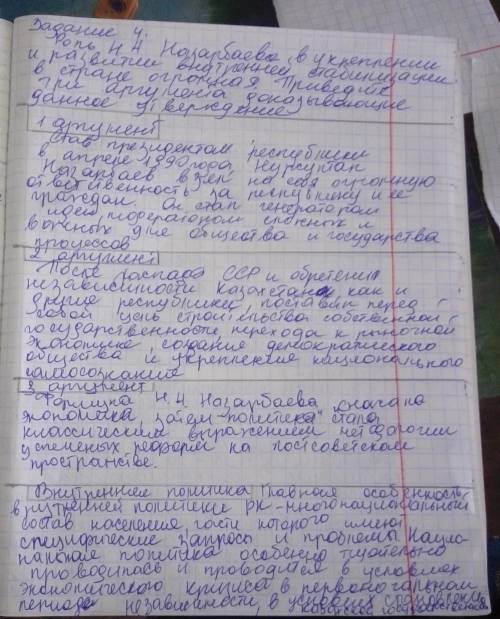 Задание 4.
Роль Н.А Назарбаева в укреплении
и развитии внутренней стабилизации
в стране огромная Приведите
три аргумента доказывающие
данное утверждение
1 аргумент
Став президентом республики
в апреле 1990 года Нурсултан
Назарбаев взял на себя огромную
ответственность за республику и её
граждан. Он стал генератором
идей, модератором сложных и
важных для общества и государства
процессов
2 аргумент
После распада ССР и обретения
независимости Казахстан как и
другие республики, поставил перед
собой цель строительства собственной
государственности, перехода к рыночной
экономике, создание демократического
общества и укрепления национального
самосознания
3 аргумент
Формула Н.А Назарбаева "сначала
экономика, затем политика" стала
классическим выражением методологии
успешных реформ на постсоветском
пространстве.
Внутренняя политика Главная особенность
внутренней политики РК - многонациональный
состав населения, части которого имеют
специфические запросы и проблемы Нацио-
нальная политика особенно тщательно
проводилась и проводится в условиях
экономического кризиса в первоначальном
периоде независимости, в условиях становления